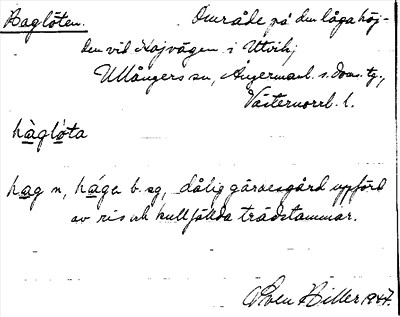 Haglöten. Område på den låga höj-
den vid Kojvägen i Utvik,
Ullångers sn, Ångermanl. s. dom. tg.,
Västernorrl. l.
hàglö̀ta
hag n, hága b. sg, dålig gärdesgård uppförd
av ris och kullfällda trädstammar.
Sven Hiller 1947.